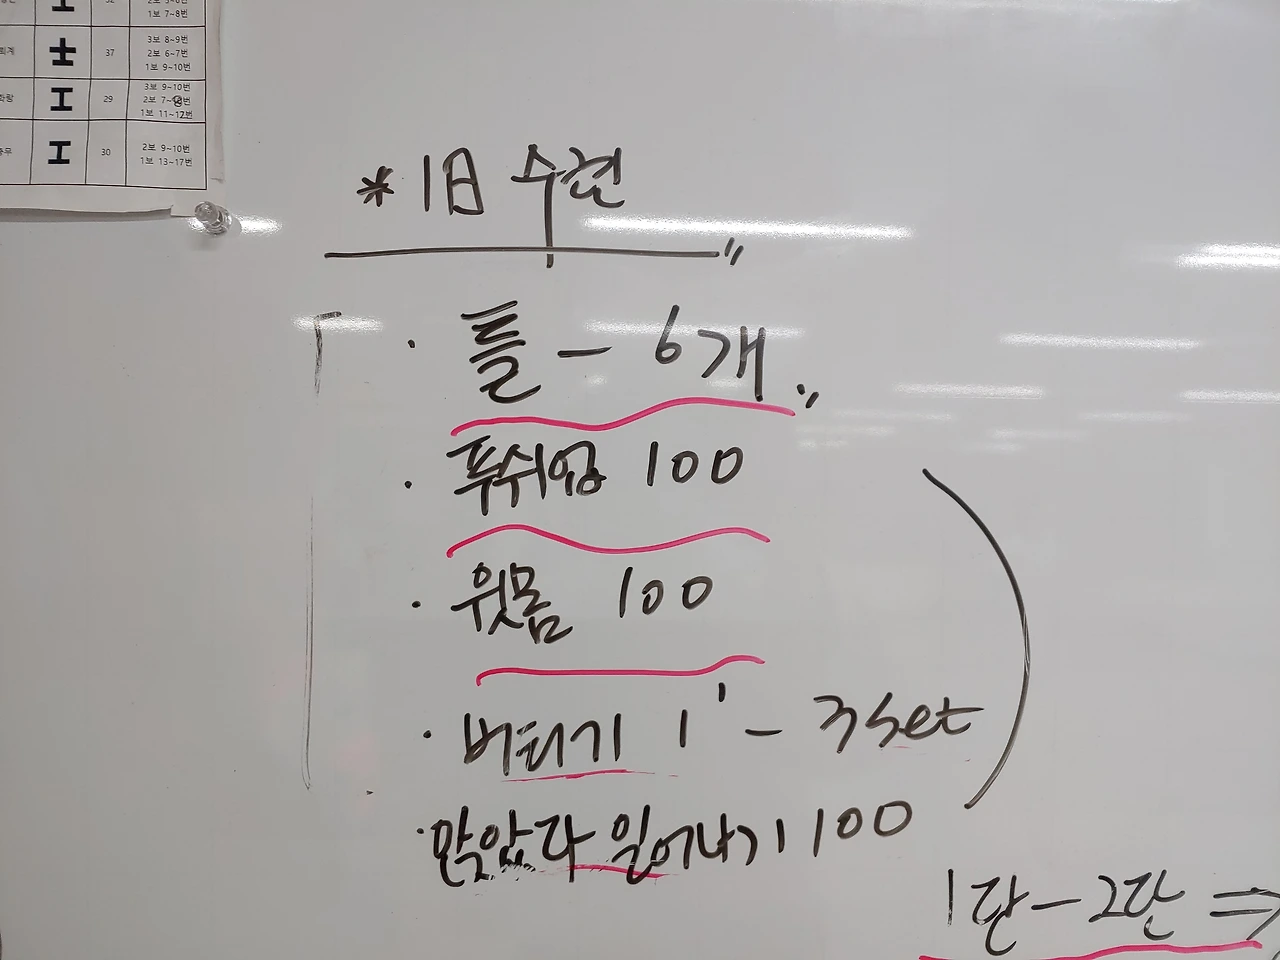 1보 7~8번
퇴계 37 3보 8~9번
2보 6~7번
1보 9~10번
화랑 29 3보 9~10번
2보 7~8번
1보 11~12번
충무 30 2보 9~10번
1보 13~17번
* 1日 수련
· 틀 - 6개
· 푸쉬업 100
· 윗몸 100
· 버티기 1' - 3set
· 앉았다 일어나기 100
1단-2단 ⇒